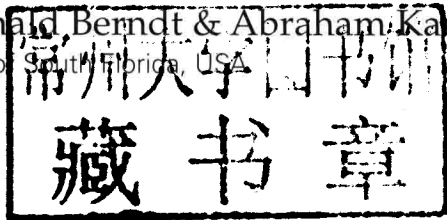 nald Berndt & Abraham Ka
South Florida, USA
常州大学图书馆
藏书章